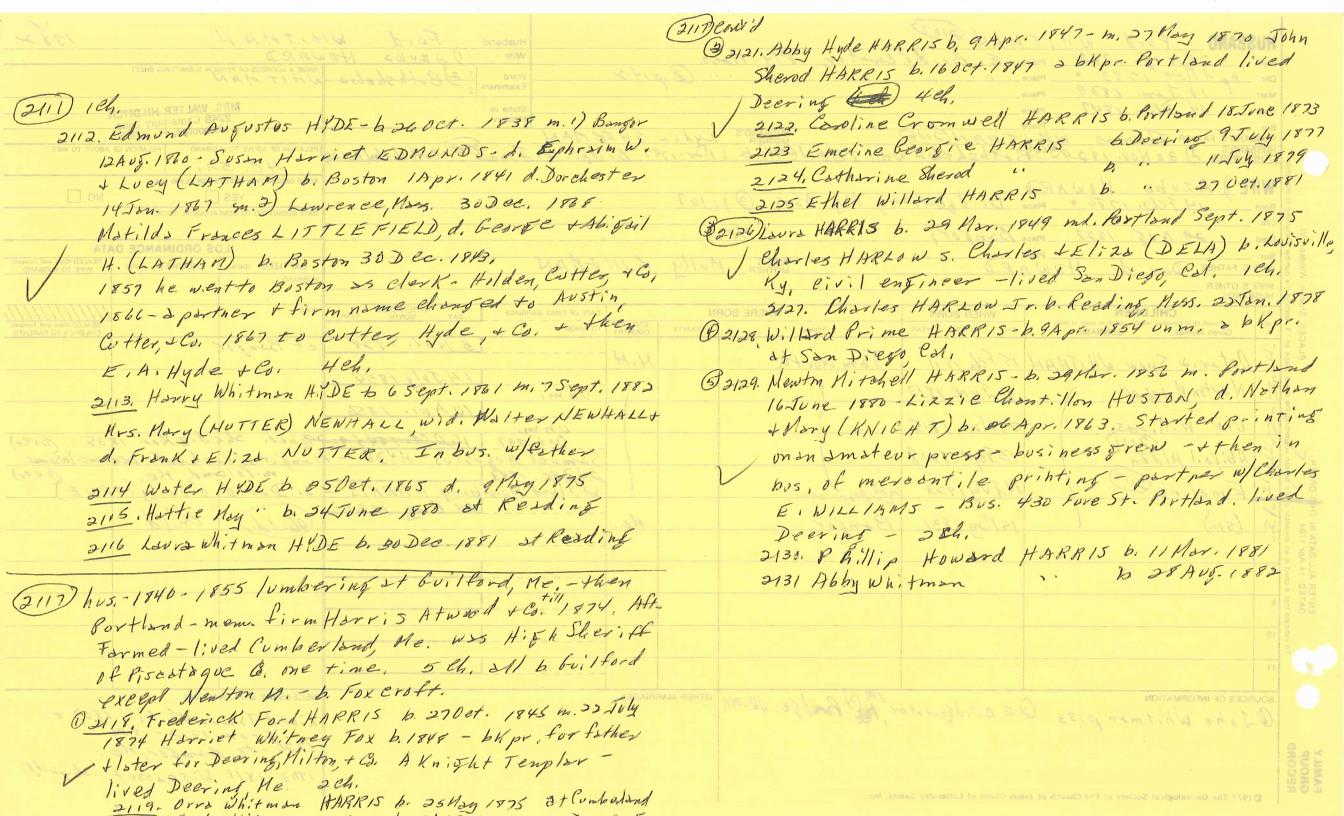 2111 1ch.
2112. Edmund Augustus HYDE - b 26 Oct. 1838 m. 1) Bangor
12 Aug. 1860 - Susan Harriet EDMUNDS - d. Ephraim W.
& Lucy (LATHAM) b. Boston 1 Apr. 1841 d. Dorchester
14 Jan. 1867 m. 2) Lawrence, Mass. 30 Dec. 1868
Matilda Frances LITTLEFIELD, d. George & Abigail
H. (LATHAM) b. Boston 30 Dec. 1843.
1857 he went to Boston as clerk - Holden, Cutter, & Co,
1866 - a partner & firm name changed to Austin,
Cutter, & Co. 1867 to Cutter, Hyde, & Co. & then
E. A. Hyde & Co. 4ch.
2113. Harry Whitman HYDE b 6 Sept. 1861 m. 7 Sept. 1882
Mrs. Mary (NUTTER) NEWHALL, wid. Walter NEWHALL &
d. Frank & Eliza NUTTER. In bus. w/father
2114 Water HYDE b 25 Oct. 1865 d. 9 May 1875
2115. Hattie May " b. 24 June 1880 at Reading
2116 Laura Whitman HYDE b. 30 Dec 1881 at Reading
2117 hus. - 1840 - 1855 lumbering at Guilford, Me. - then
Portland - mem. firm Harris Atwood & Co. till 1874. Aft-
Farmed - lived Cumberland, Me. was High Sheriff
of Piscataque Co. one time. 5 ch. all b Guilford
except Newton M. - b. Foxcroft.
① 2118. Frederick Ford HARRIS b. 27 Oct. 1845 m. 22 July
1874 Harriet Whitney Fox b. 1848 - bkpr. for father
& later for Deering, Milton, & Co. A Knight Templar -
lived Deering, Me 2ch.
2119. Orra Whitman HARRIS b. 25 May 1875 at Cumberland
2117 cont'd
② 2121. Abby Hyde HARRIS b. 9 Apr. 1847 - m. 27 May 1870 John
Sherod HARRIS b. 16 Oct. 1847 a bkpr. Portland lived
Deering 4ch.
2122. Caroline Cromwell HARRIS b. Portland 18 June 1873
2123 Emeline Georgie HARRIS b. Deering 9 July 1877
2124. Catharine Sherod " b. " 11 July 1879
2125 Ethel Willard HARRIS b. " 27 Oct. 1881
③ 2126 Laura HARRIS b. 29 Mar. 1849 md. Portland Sept. 1875
Charles HARLOW s. Charles & Eliza (DELA) b. Louisville,
Ky, civil engineer - lived San Diego, Cal. 1ch.
2127. Charles HARLOW Jr. b. Reading, Mass. 22 Jan. 1878
④ 2128. Willard Prime HARRIS - b. 9 Apr. 1854 unm. a bkpr.
at San Diego, Cal.
⑤ 2129. Newton Mitchell HARRIS - b. 29 Mar. 1856 m. Portland
16 June 1880 - Lizzie Chantillon HUSTON, d. Nathan
& Mary (KNIGHT) b. 26 Apr. 1863. Started printing
on an amateur press - business grew - & then in
bus, of mercantile printing - partner w/Charles
E. WILLIAMS - Bus. 430 Fore St. Portland. lived
Deering - 2ch.
2130. Phillip Howard HARRIS b. 11 Mar. 1881
2131 Abby Whitman " b 28 Aug. 1882